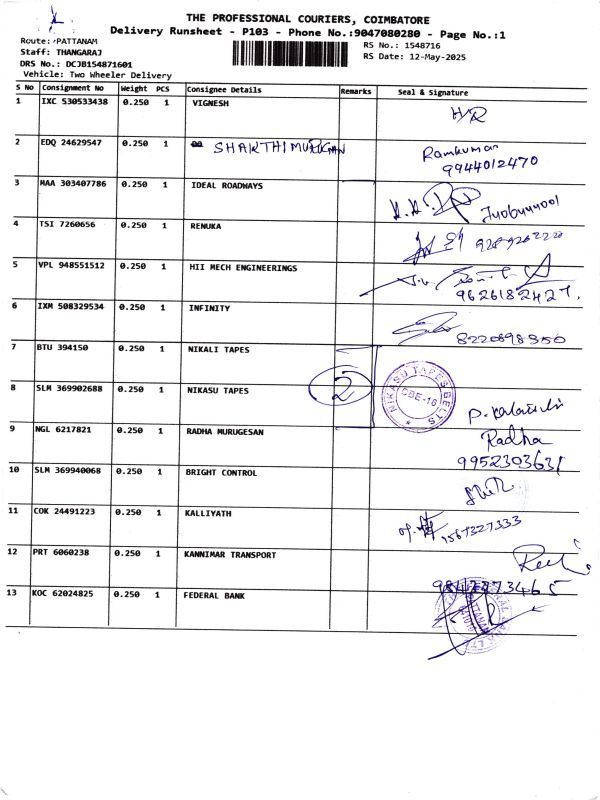 THE PROFESSIONAL COURIERS, COIMBATORE
Delivery Runsheet - P103 - Phone No.:9047080280 - Page No.:1
Route: PATTANAM
RS No.: 1548716
Staff: THANGARAJ
RS Date: 12-May-2025
DRS No.: DCJB154871601
Vehicle: Two Wheeler Delivery
S No Consignment No Weight PCS Consignee Details Remarks Seal & Signature
1 IXC 530533438 0.250 1 VIGNESH H/R
2 EDQ 24629547 0.250 1 SHAKTHIMURUGAN Ramkumar
9944012470
3 MAA 303407786 0.250 1 IDEAL ROADWAYS
4 TSI 7260656 0.250 1 RENUKA
5 VPL 948551512 0.250 1 HII MECH ENGINEERINGS
9626182427.
6 IXM 508329534 0.250 1 INFINITY
8220898350
7 BTU 394150 0.250 1 NIKALI TAPES
8 SLM 369902688 0.250 1 NIKASU TAPES 2 NIKASU TAPES BELTS CBE-16
9 NGL 6217821 0.250 1 RADHA MURUGESAN Radha
9952303631
10 SLM 369940068 0.250 1 BRIGHT CONTROL
11 COK 24491223 0.250 1 KALLIYATH 1567327333
12 PRT 6060238 0.250 1 KANNIMAR TRANSPORT
9847273465
13 KOC 62024825 0.250 1 FEDERAL BANK